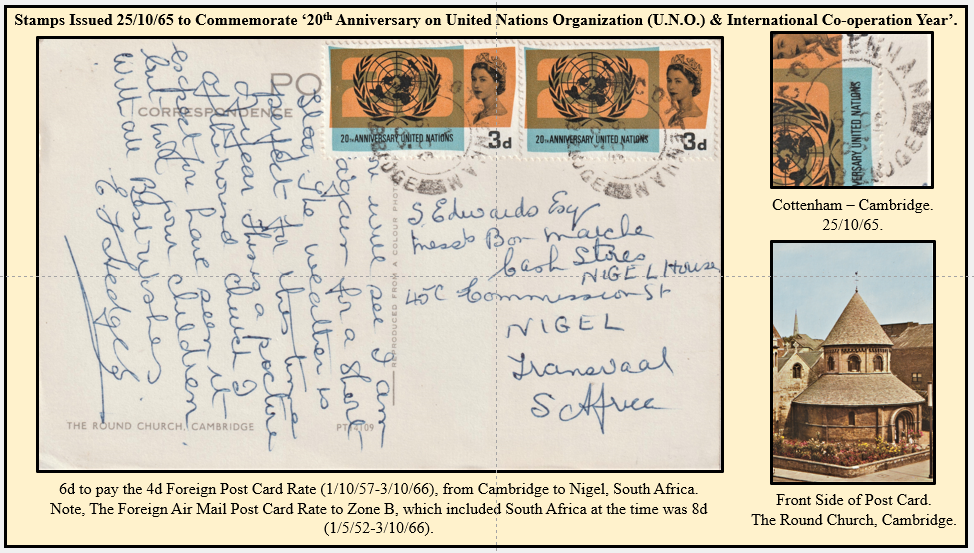 Stamps Issued 25/10/65 to Commemorate ‘20th Anniversary on United Nations Organization (U.N.O.) & International Co-operation Year’.
CORRESPONDENCE
PO
20TH ANNIVERSARY UNITED NATIONS 3d
20TH ANNIVERSARY UNITED NATIONS 3d
you will see I am
again for a short
the weather is
perfect for this time
of year this is a picture
of the round church I
expect you have seen it
but not your children
With all Best Wishes
Hedges
REPRODUCED FROM A COLOUR PHOTO
S Edwards Esq
Bon Marche
Cash Stores
NIGEL House
45C Commission St
NIGEL
Transvaal
S Africa
THE ROUND CHURCH, CAMBRIDGE
COTTENHAM
VERSARY UNITED NATIONS
Cottenham – Cambridge.
25/10/65.
6d to pay the 4d Foreign Post Card Rate (1/10/57-3/10/66), from Cambridge to Nigel, South Africa.
Note, The Foreign Air Mail Post Card Rate to Zone B, which included South Africa at the time was 8d
(1/5/52-3/10/66).
Front Side of Post Card.
The Round Church, Cambridge.